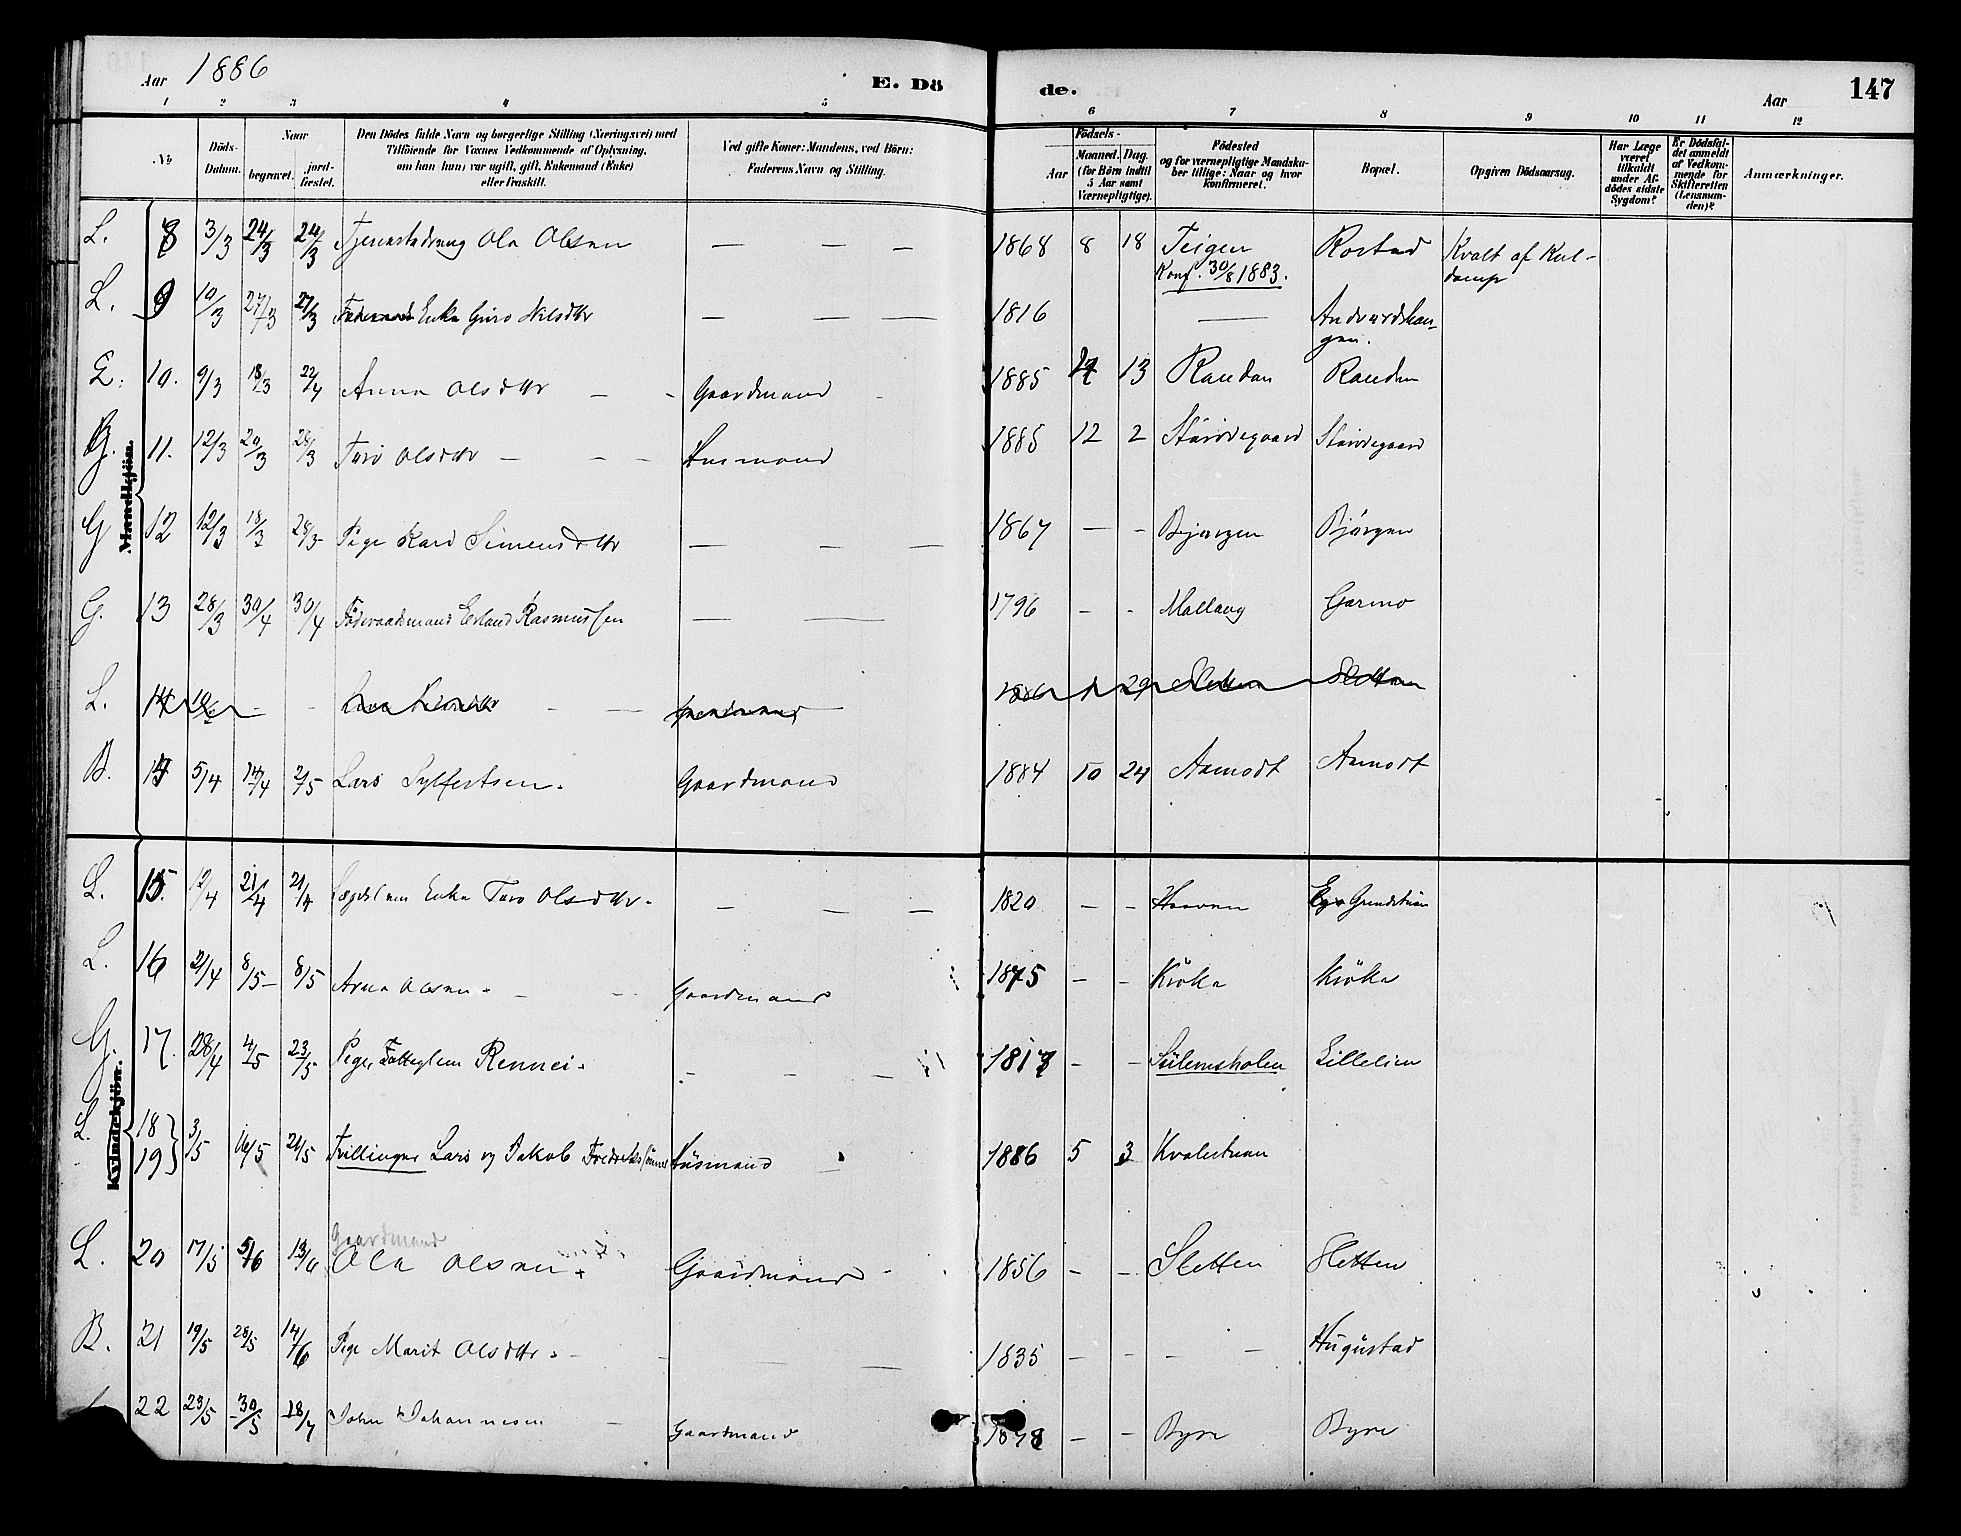 Aar 1886
E. Dö
de.
Aar
147
1 2 3 4 5 6 7 8 9 10 11 12
No
Döds-Datum.
Naar
begravet.
jord-fæstet.
Den Dödes fulde Navn og borgerlige Stilling (Næringsvei) med
Tilföiende for Voxnes Vedkommende af Oplysning,
om han (hun) var ugift, gift, Enkemand (Enke)
eller fraskilt.
Ved gifte Koner: Mandens, ved Börn:
Faderens Navn og Stilling.
Födsels-
Aar
Maaned. Dag.
(for Börn indtil
5 Aar samt
Værnepligtige).
Födested
og for værnepligtige Mandsku-
ber tillige: Naar og hvor
konfirmeret.
Bopæl.
Opgiven Dödsaarsag.
Har Læge
været
tilkaldt
under Af-
dödes sidste
Sygdom?
Er Dödsfal-
det anmeldt
af Vedkom-
mende for
Skifteretten
(Lensman-
den)?
Anmærkninger.
Mandkjön.
L. 8 3/3 24/3 24/3 Ola Olsen — — — 1868 8 18 Teigen Rostad Kvalt af Kul-
Konf. 30/8 1883. damp
L. 9 10/3 27/3 27/3 Enke Guro Nilsdtr — — — 1816 —
10. 9/3 18/3 22/4 Anna Olsdtr — - Gaardmand 1885 13 Randen Randen
G. 11. 12/3 20/3 28/3 Olsdtr — — — Husmand 1885 12 2
G 12 12/3 18/3 28/3 Pige Kari Simensdtr — — — 1867 — - Bjørgen Bjørgen
G. 13 28/3 30/4 30/4 Föderaadsmand Erland Rasmussen — — 1796 - - Garmo
L. 14 29 Sletten Sletten
B. 14 5/4 14/4 2/5 Lars Sylfestsen. Gaardmand 1884 10 24 Aamodt Aamodt
Kvindekjön.
L. 15. 12/4 21/4 21/4 Enke Olsdtr. — — — 1820 - - Grundstuen
L. 16 21/4 8/5 8/5 Olsen - Gaardmand 1875 - - Kröka Kröka
G. 17. 28/4 4/5 23/5 Pige, Rennei. - - — - - Lillelien
L. 18
19 3/5 16/5 21/5 Tvillinger Lars og Jakob Fredrikssönner Husmand 1886 5 3
Gaardmand
L. 20 17/5 5/6 13/6 Ola Olsen Gaardmand 1856 - - Sletten Sletten
B. 21 19/5 28/5 14/6 Pige Marit Olsdtr. - — — 1835 - - - - Hugustad
22 23/5 30/5 18/7 John Johannesen — Gaardmand - - Byre Byre